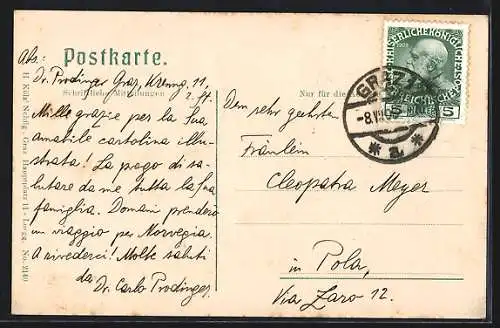 Abs:
Dr. Prodinger Graz, Krenng. 11
2. St.
Postkarte.
Schriftliche Mitteilungen
Nur für die
Mille grazie per la Sua
amabile cartolina illu-
strata! La prego di sa-
lutare da me tutta la Sua
famiglia. Domani prenderò
un viaggio per Norvegia.
A rivederci! Molti saluti
da
Dr. Carlo Prodinger
Dem sehr geehrten
Fräulein
Cleopatra Meyer
in Pola,
Via Zaro 12.
KAISERLICHE KÖNIGLICHE
ÖSTERREICHISCHE
1908
5 5
GRAZ 1
-8.VII.09
* a *
Graz Hauptplatz 11
No. 2140